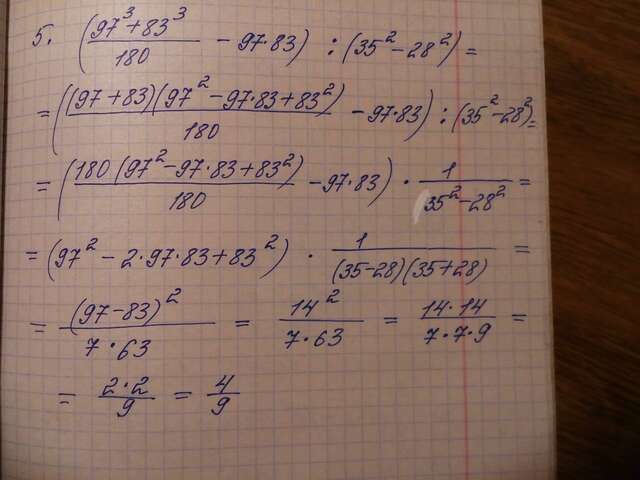 5. ((97³+83³)/180 - 97·83) : (35²-28²) =
= ((97+83)(97²-97·83+83²)/180 - 97·83) : (35²-28²) =
= (180(97²-97·83+83²)/180 - 97·83) · 1/(35²-28²) =
= (97²-2·97·83+83²) · 1/((35-28)(35+28)) =
= (97-83)²/(7·63) = 14²/(7·63) = 14·14/(7·7·9) =
= 2·2/9 = 4/9